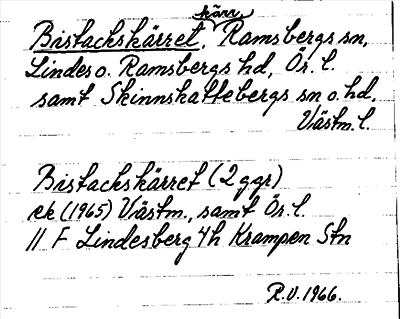 kärr
Bistachskärret, Ramsbergs sn,
Lindes o. Ramsbergs hd, Ör. l.
samt Skinnskattebergs sn o. hd.
Västm. l.
Bistachskärret (2 ggr)
ek (1965) Västm., samt Ör. l.
11 F Lindesberg 4h Krampen Stn
R.V. 1966.